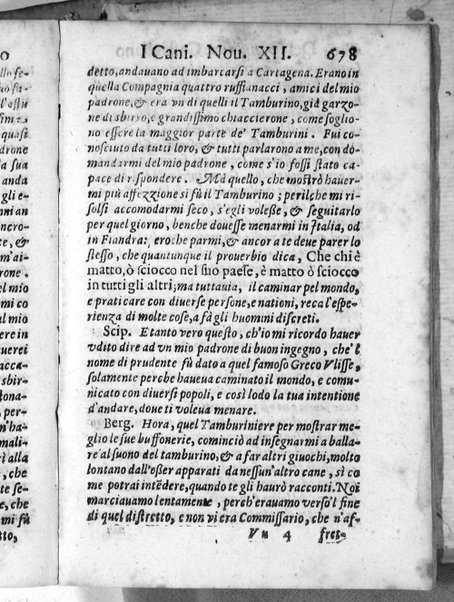 I Cani. Nou. XII. 678
detto, andauano ad imbarcarsi a Cartagena. Erano in
quella Compagnia quattro ruffianacci, amici del mio
padrone, & era vn di quelli il Tamburino, già garzo-
ne di sbirro, e grandissimo chiaccierone, come soglio-
no essere la maggior parte de' Tamburini. Fui co-
nosciuto da tutti loro, & tutti parlarono a me, con do-
mandarmi del mio padrone, come s'io fossi stato ca-
pace di rispondere. Mà quello, che mostrò hauer-
mi più affezzione si fù il Tamburino; perilche mi ri-
solsi accomodarmi seco, s'egli volesse, & seguitarlo
per quel giorno, benche douesse menarmi in Italia, od
in Fiandra: eroche parmi, & ancor a te deue parer lo
stesso, che quantunque il prouerbio dica, Che chi è
matto, ò sciocco nel suo paese, è matto ò sciocco
in tutti gli altri; ma tuttauia, il caminar pel mondo,
e praticare con diuerse persone, e nationi, reca l'espe-
rienza di molte cose, a fà gli huomini discreti.
Scip. E tanto vero questo, ch'io mi ricordo hauer
vdito dire ad vn mio padrone di buon ingegno, che'l
nome di prudente fù dato a quel famoso Greco Vlisse,
solamente perche haueua caminato il mondo, e comu-
nicato con diuersi popoli, e così lodo la tua intentione
d'andare, doue ti voleua menare.
Berg. Hora, quel Tamburiniere per mostrar me-
glio le sue buffonerie, cominciò ad insegnarmi a balla-
re al suono del tamburino, & a far altri giuochi, molto
lontano dall'esser apparati da nessun'altro cane, sì co
me potrai intēdere, quando te gli haurò racconti. Noi
marciauamo lentamente, perch'erauamo verso'l fine
di quel distretto, e non vi era Commissario, che n'af-
Vu 4 fret-